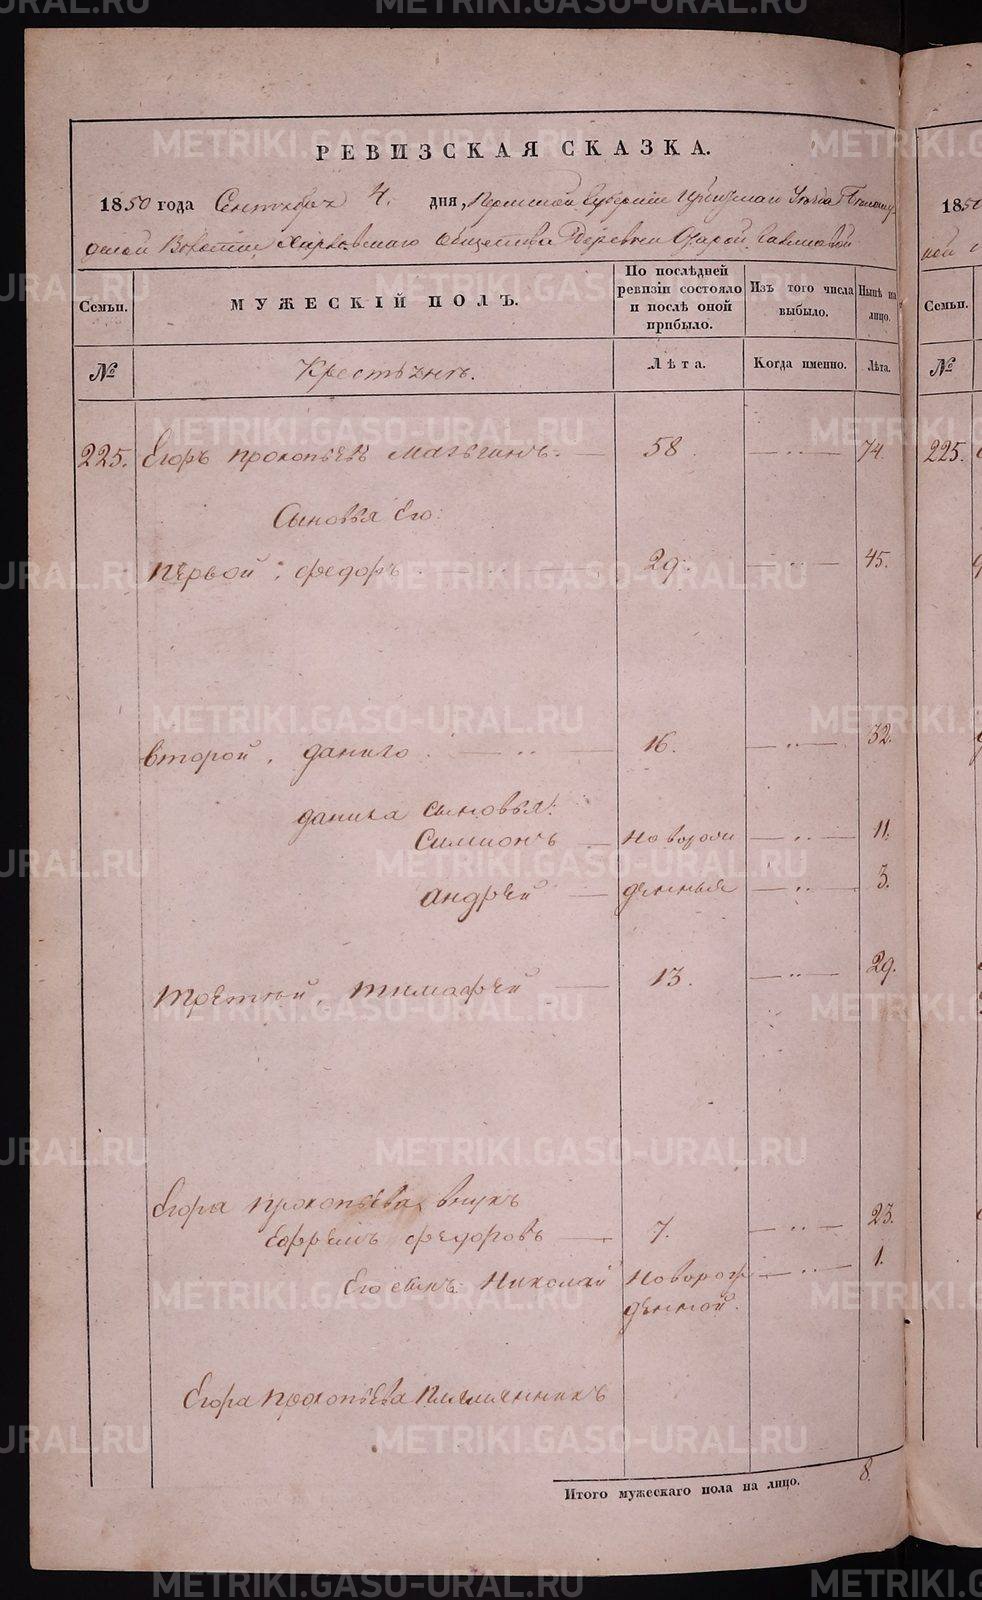 РЕВИЗСКАЯ СКАЗКА.
1850 года Сентября 4. дня, Пермской Губернии Ирбитскаго Уезда
Волости, Харловскаго общества Деревни Старой
Семьи.
МУЖЕСКІЙ ПОЛЪ.
По послѣдней ревизіи состояло и послѣ оной прибыло.
Изъ того числа выбыло.
Нынѣ на лицо.
№
Крестьянъ.
Лѣта.
Когда именно.
Лѣта.
225. Егоръ Прокопьевъ Мальгинъ. 58 74.
Сыновья Его:
Первой, Федоръ 29. 45.
Второй, Данило 16. 32.
Данила Сыновья:
Симионъ новорож 11.
Андрей денныя 3.
Третий, Тимафей 13. 29.
Егора Прокопьева внукъ
Ефремъ Федоровъ 7. 23.
Его сынъ Николай новорож 1.
денной.
Егора Прокопьева Племянникъ
Итого мужескаго пола на лицо. 8.
1850
Семьи.
№
225.
METRIKI.GASO-URAL.RU